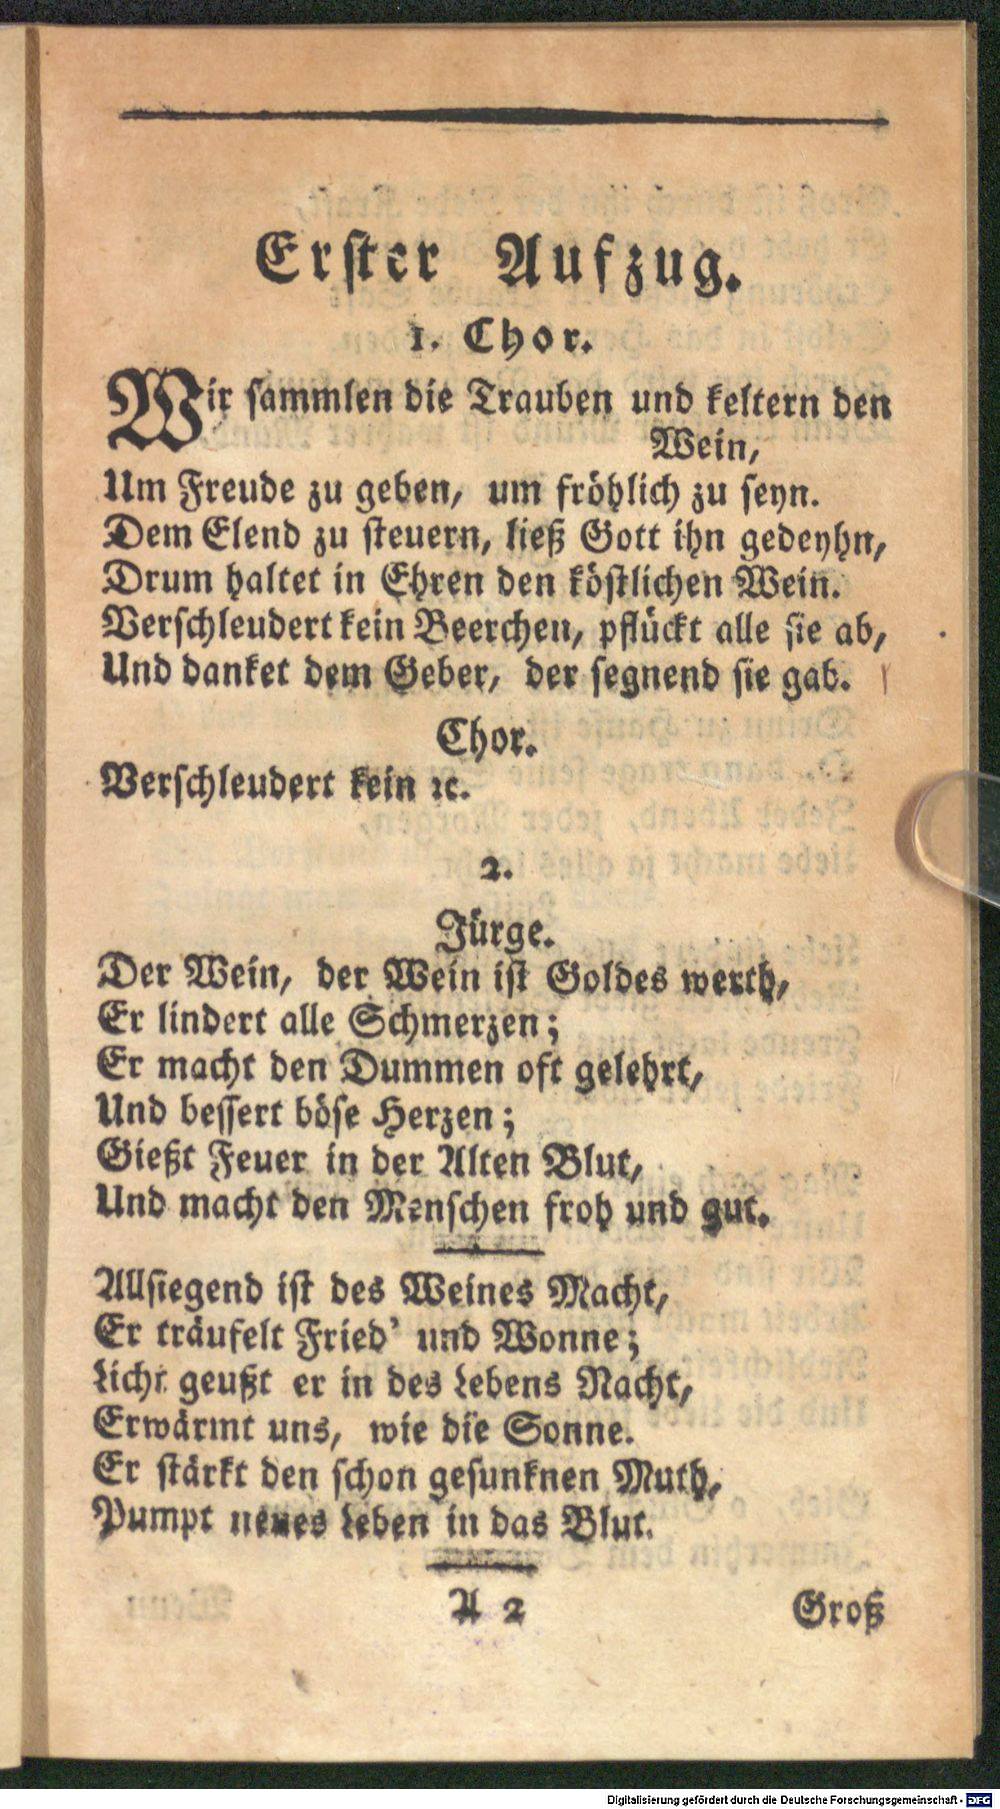 Erster Aufzug.
1. Chor.
Wir sammlen die Trauben und keltern den
Wein,
Um Freude zu geben, um fröhlich zu seyn.
Dem Elend zu steuern, ließ Gott ihn gedeyhn,
Drum haltet in Ehren den köstlichen Wein.
Verschleudert kein Beerchen, pflückt alle sie ab,
Und danket dem Geber, der segnend sie gab.
Chor.
Verschleudert kein ꝛc.
2.
Jürge.
Der Wein, der Wein ist Goldes werth,
Er lindert alle Schmerzen;
Er macht den Dummen oft gelehrt,
Und bessert böse Herzen;
Gießt Feuer in der Alten Blut,
Und macht den Menschen froh und gut.
Allsiegend ist des Weines Macht,
Er träufelt Fried' und Wonne;
Licht geußt er in des Lebens Nacht,
Erwärmt uns, wie die Sonne.
Er stärkt den schon gesunknen Muth,
Pumpt neues Leben in das Blut.
A 2
Groß
Digitalisierung gefördert durch die Deutsche Forschungsgemeinschaft - DFG